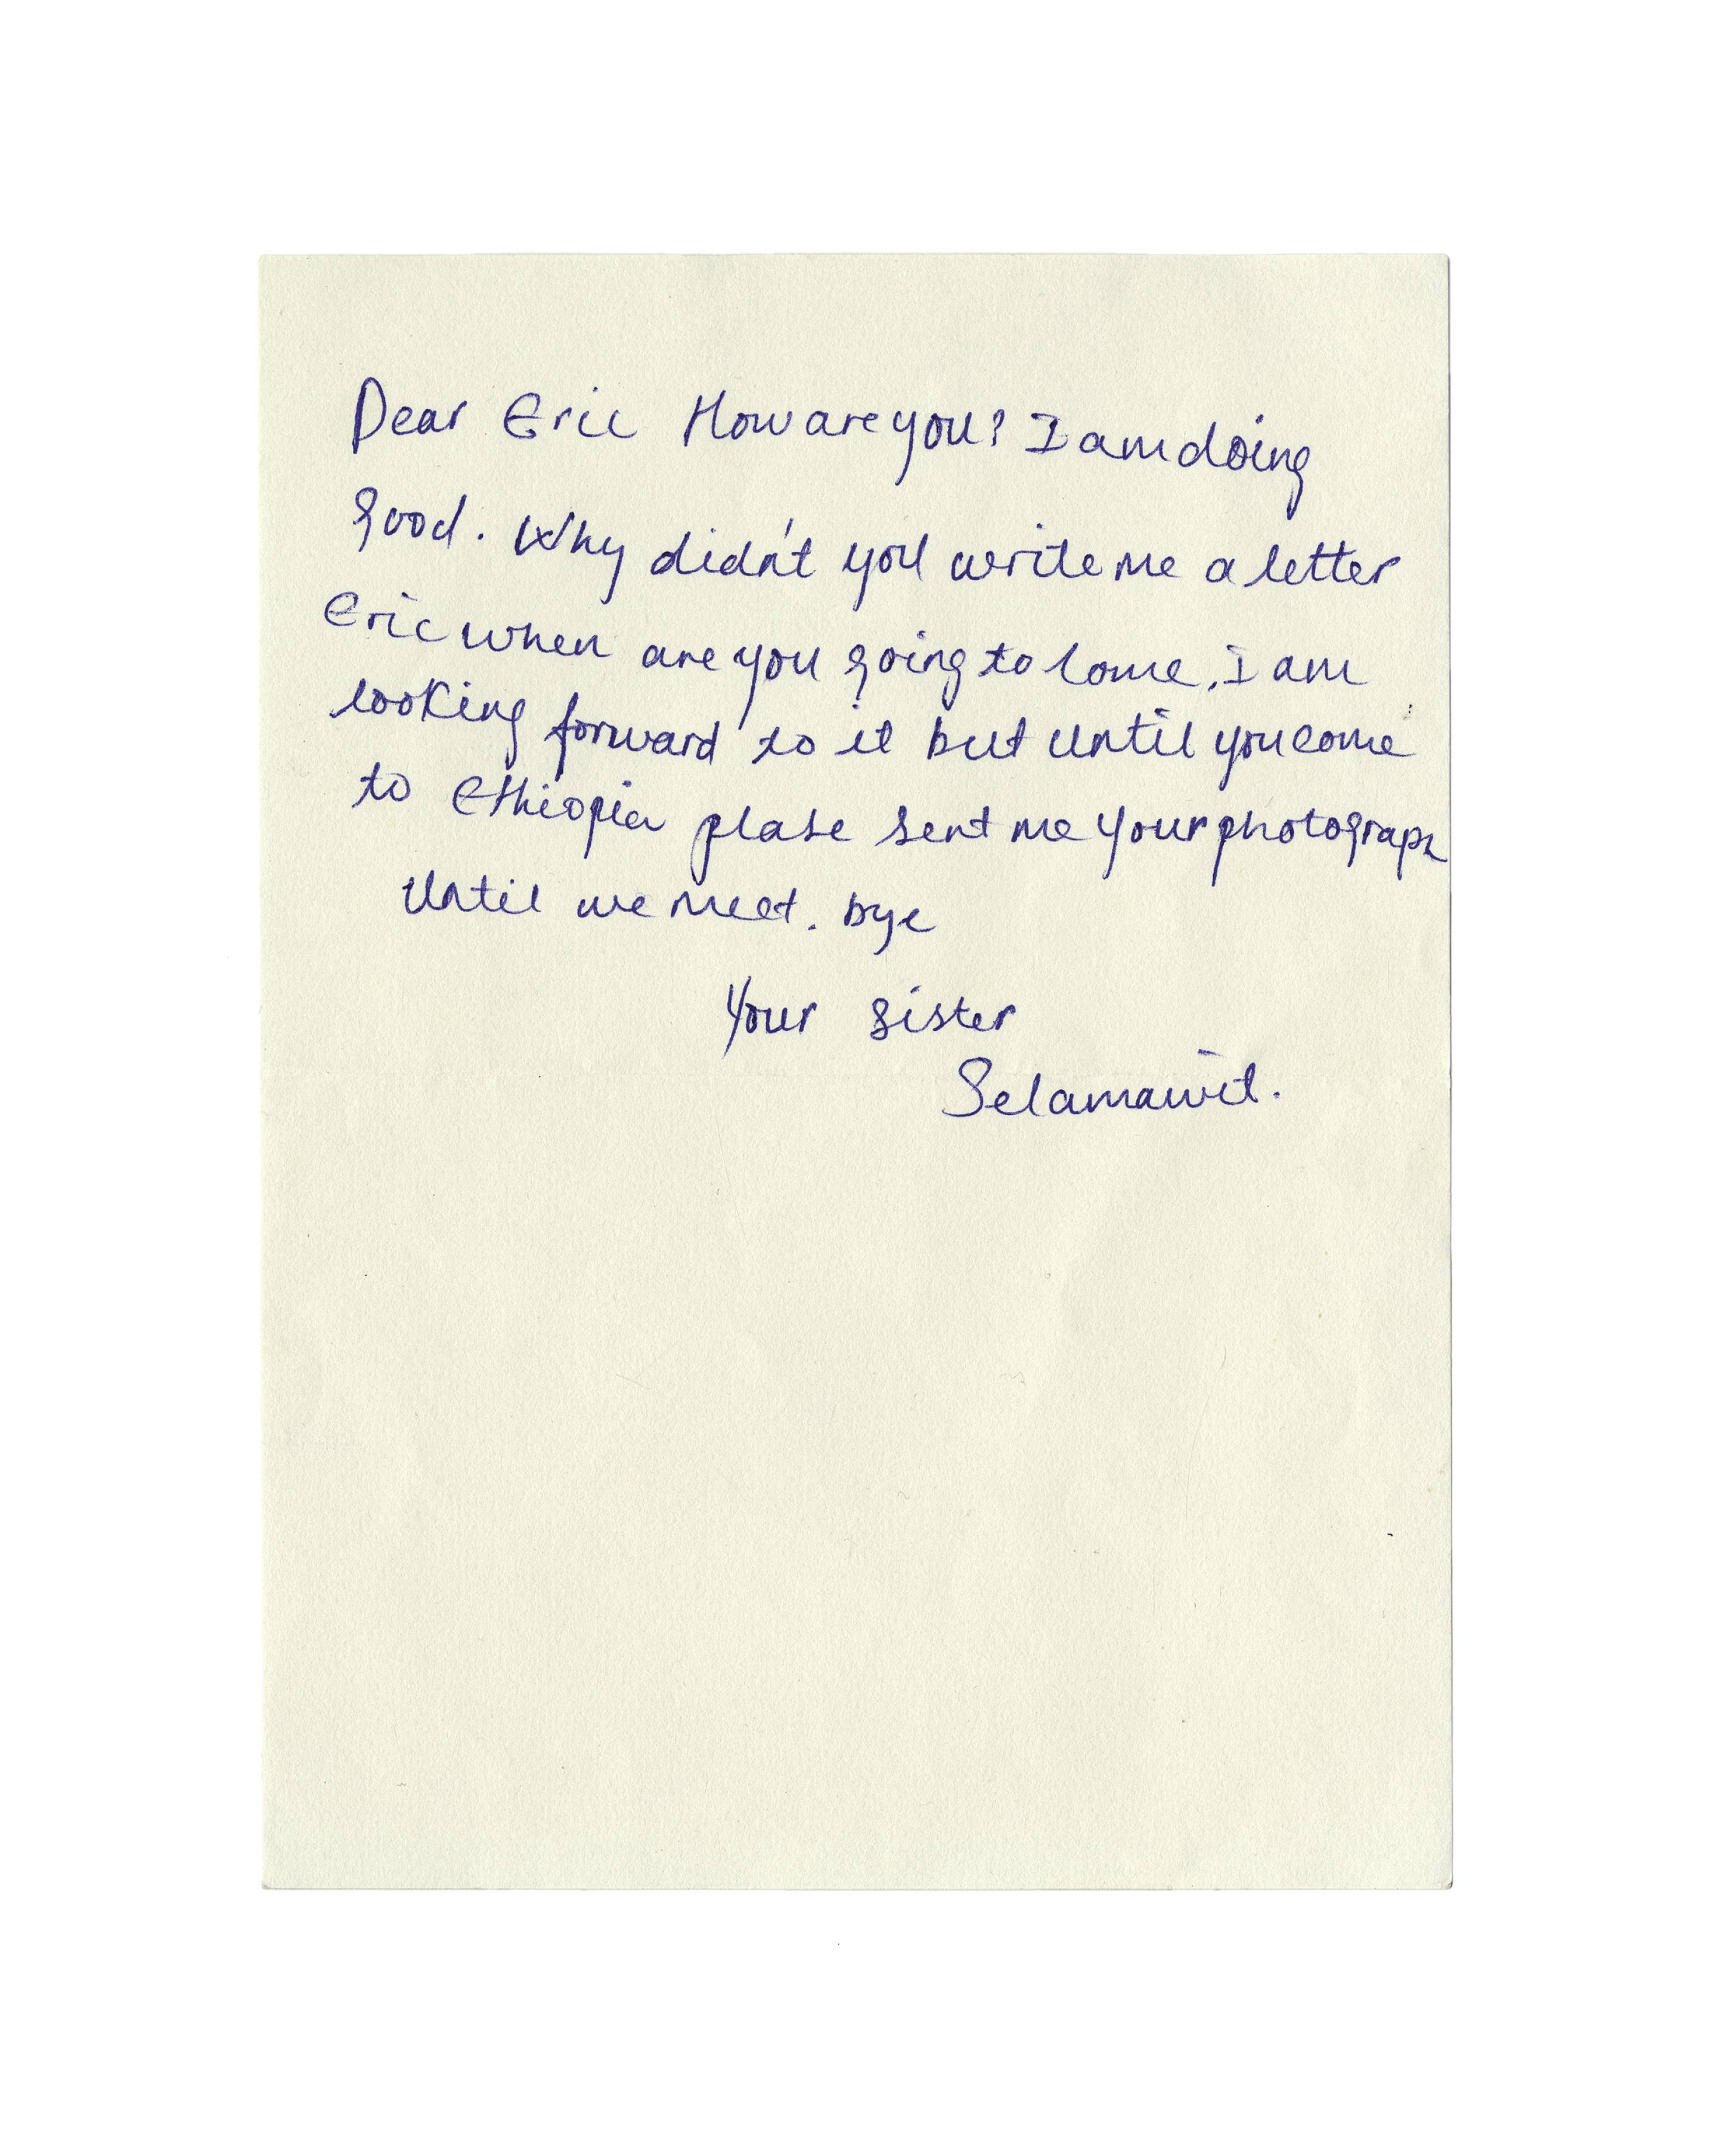 Dear Eric How are you? I am doing
good. Why didn't you write me a letter
Eric when are you going to come. I am
looking forward to it but until you come
to Ethiopia plase sent me your photograph
Until we meet. bye
Your sister
Selamawit.